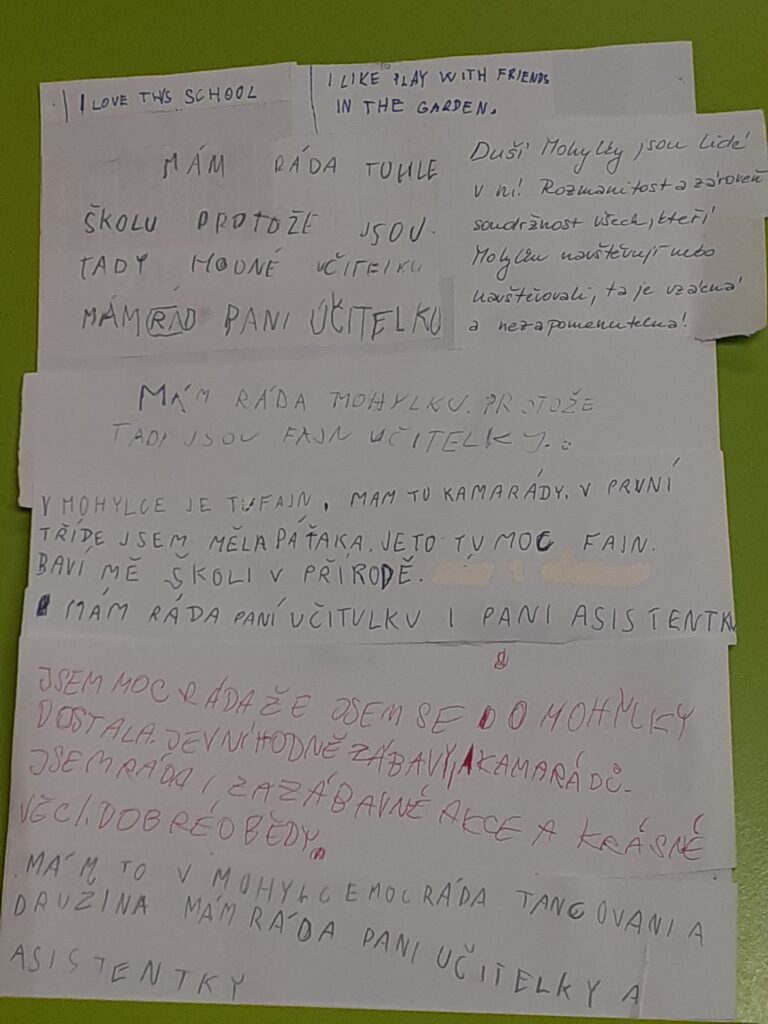 I LOVE THIS SCHOOL
I LIKE PLAY WITH FRIENDS
IN THE GARDEN.
MÁM RÁDA TUHLE
ŠKOLU PROTOŽE JSOU
TADY HODNÉ UČITELKI
MÁM RÁD PANI ÚČITELKU
Duší Mohylky jsou lidé
v ní! Rozmanitost a zároveň
soudržnost všech, kteří
Mohylku navštěvují nebo
navštěvovali, ta je vzácná
a nezapomenutelná!
MÁM RÁDA MOHYLKU. PROTOŽE
TADI JSOU FAJN UČITELKY.
V MOHYLCE JE TU FAJN. MAM TU KAMARÁDY. V PRVNÍ
TŘÍDE JSEM MĚLA PÁŤAKA. JE TO TU MOC FAJN.
BAVÍ MĚ ŠKOLI V PŘÍRODĚ.
MÁM RÁDA PANÍ UČITULKU I PANI ASISTENTKU
JSEM MOC RÁDA ŽE JSEM SE DO MOHYLKY
DOSTALA. JE V NÍ HODNĚ ZÁBAVY, A KAMARÁDŮ.
JSEM RÁDA I ZA ZÁBAVNÉ AKCE A KRÁSNÉ
VĚCI. DOBRÉ OBĚDY.
MÁM TO V MOHYLCE MOC RÁDA TANCOVANI A
DRUZINA MÁM RÁDA PANI UČITELKY A
ASISTENTKY